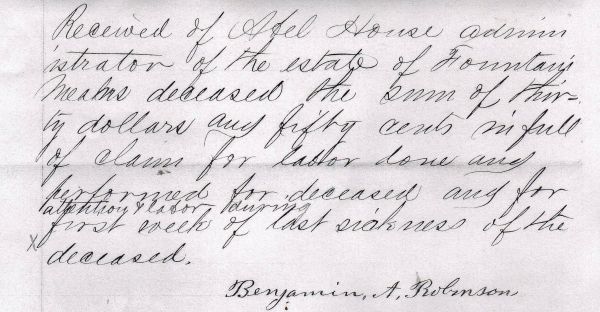 Received of Abel House admin
istrator of the estate of Fountain
Means deceased the sum of thir-
ty dollars and fifty cents in full
of claim for labor done and
performed for deceased and for
attention & labor during
first week of last sickness of the
x
deceased.
Benjamin, A, Robinson